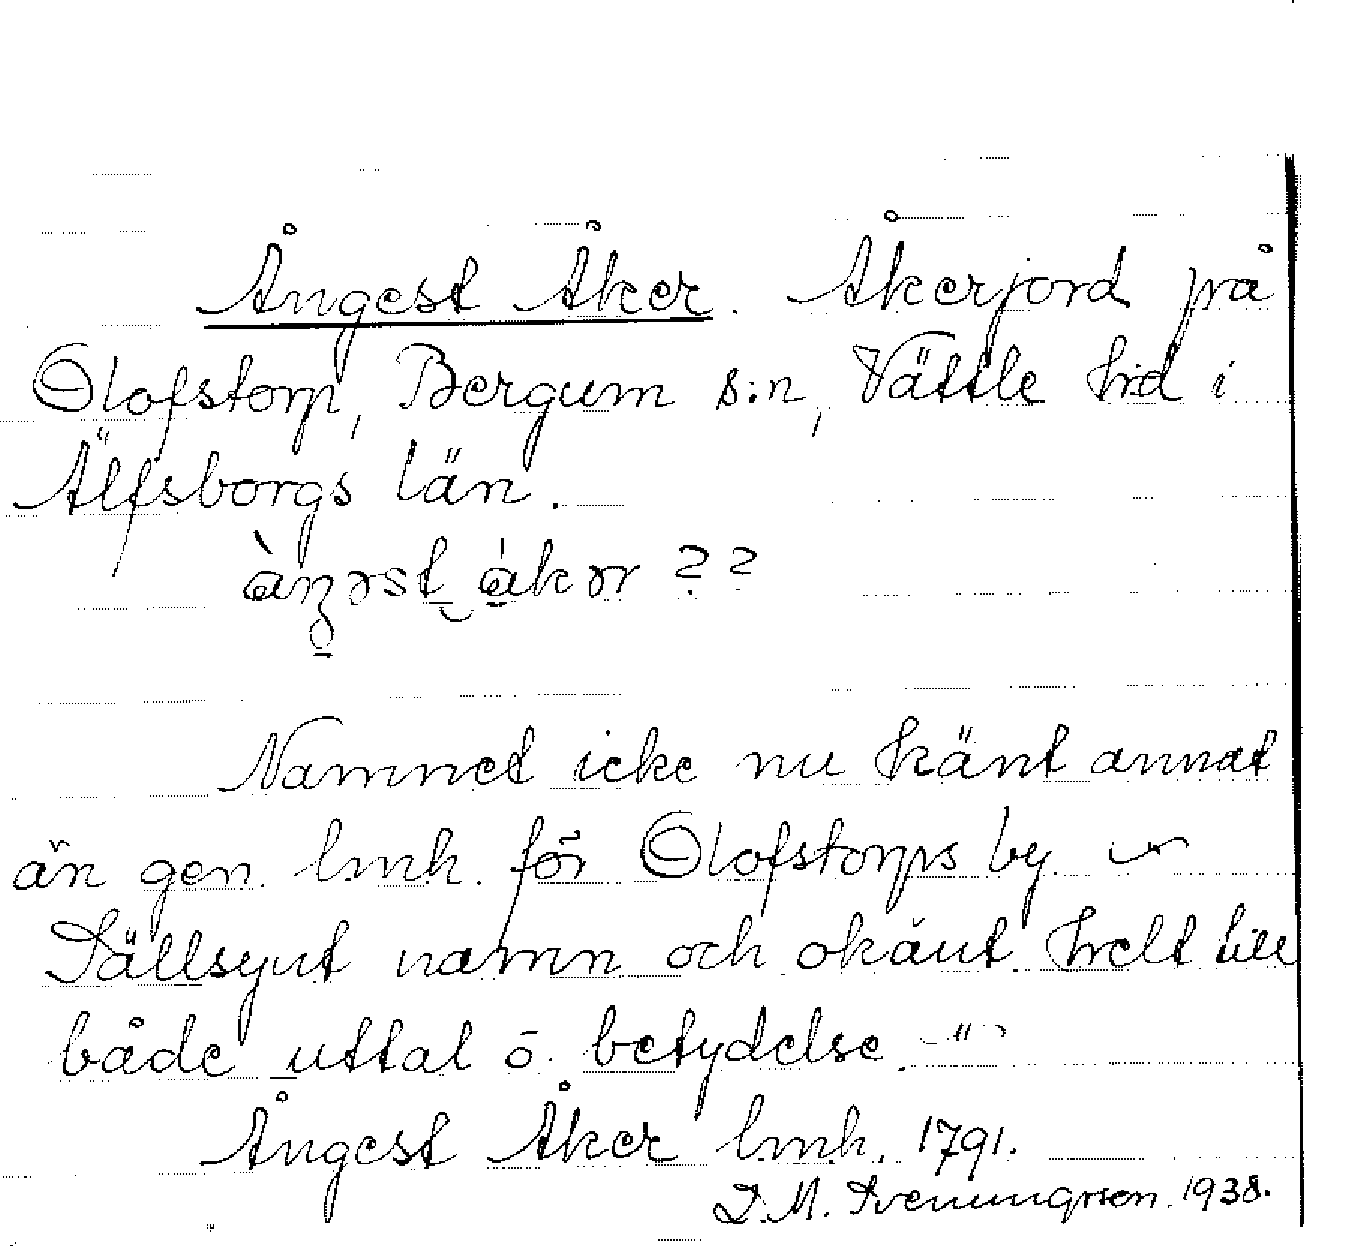 Ångest Åker. Åkerjord på
Olofstorp, Bergum s:n, Vättle hd i
Älfsborgs län.
Namnet icke nu känt annat
än gen. lmh. för Olofstorps by.
Sällsynt namn och okänt helt till
både uttal o. betydelse. "
Ångest Åker lmh. 1791.
D.M. Svenungsson. 1938.